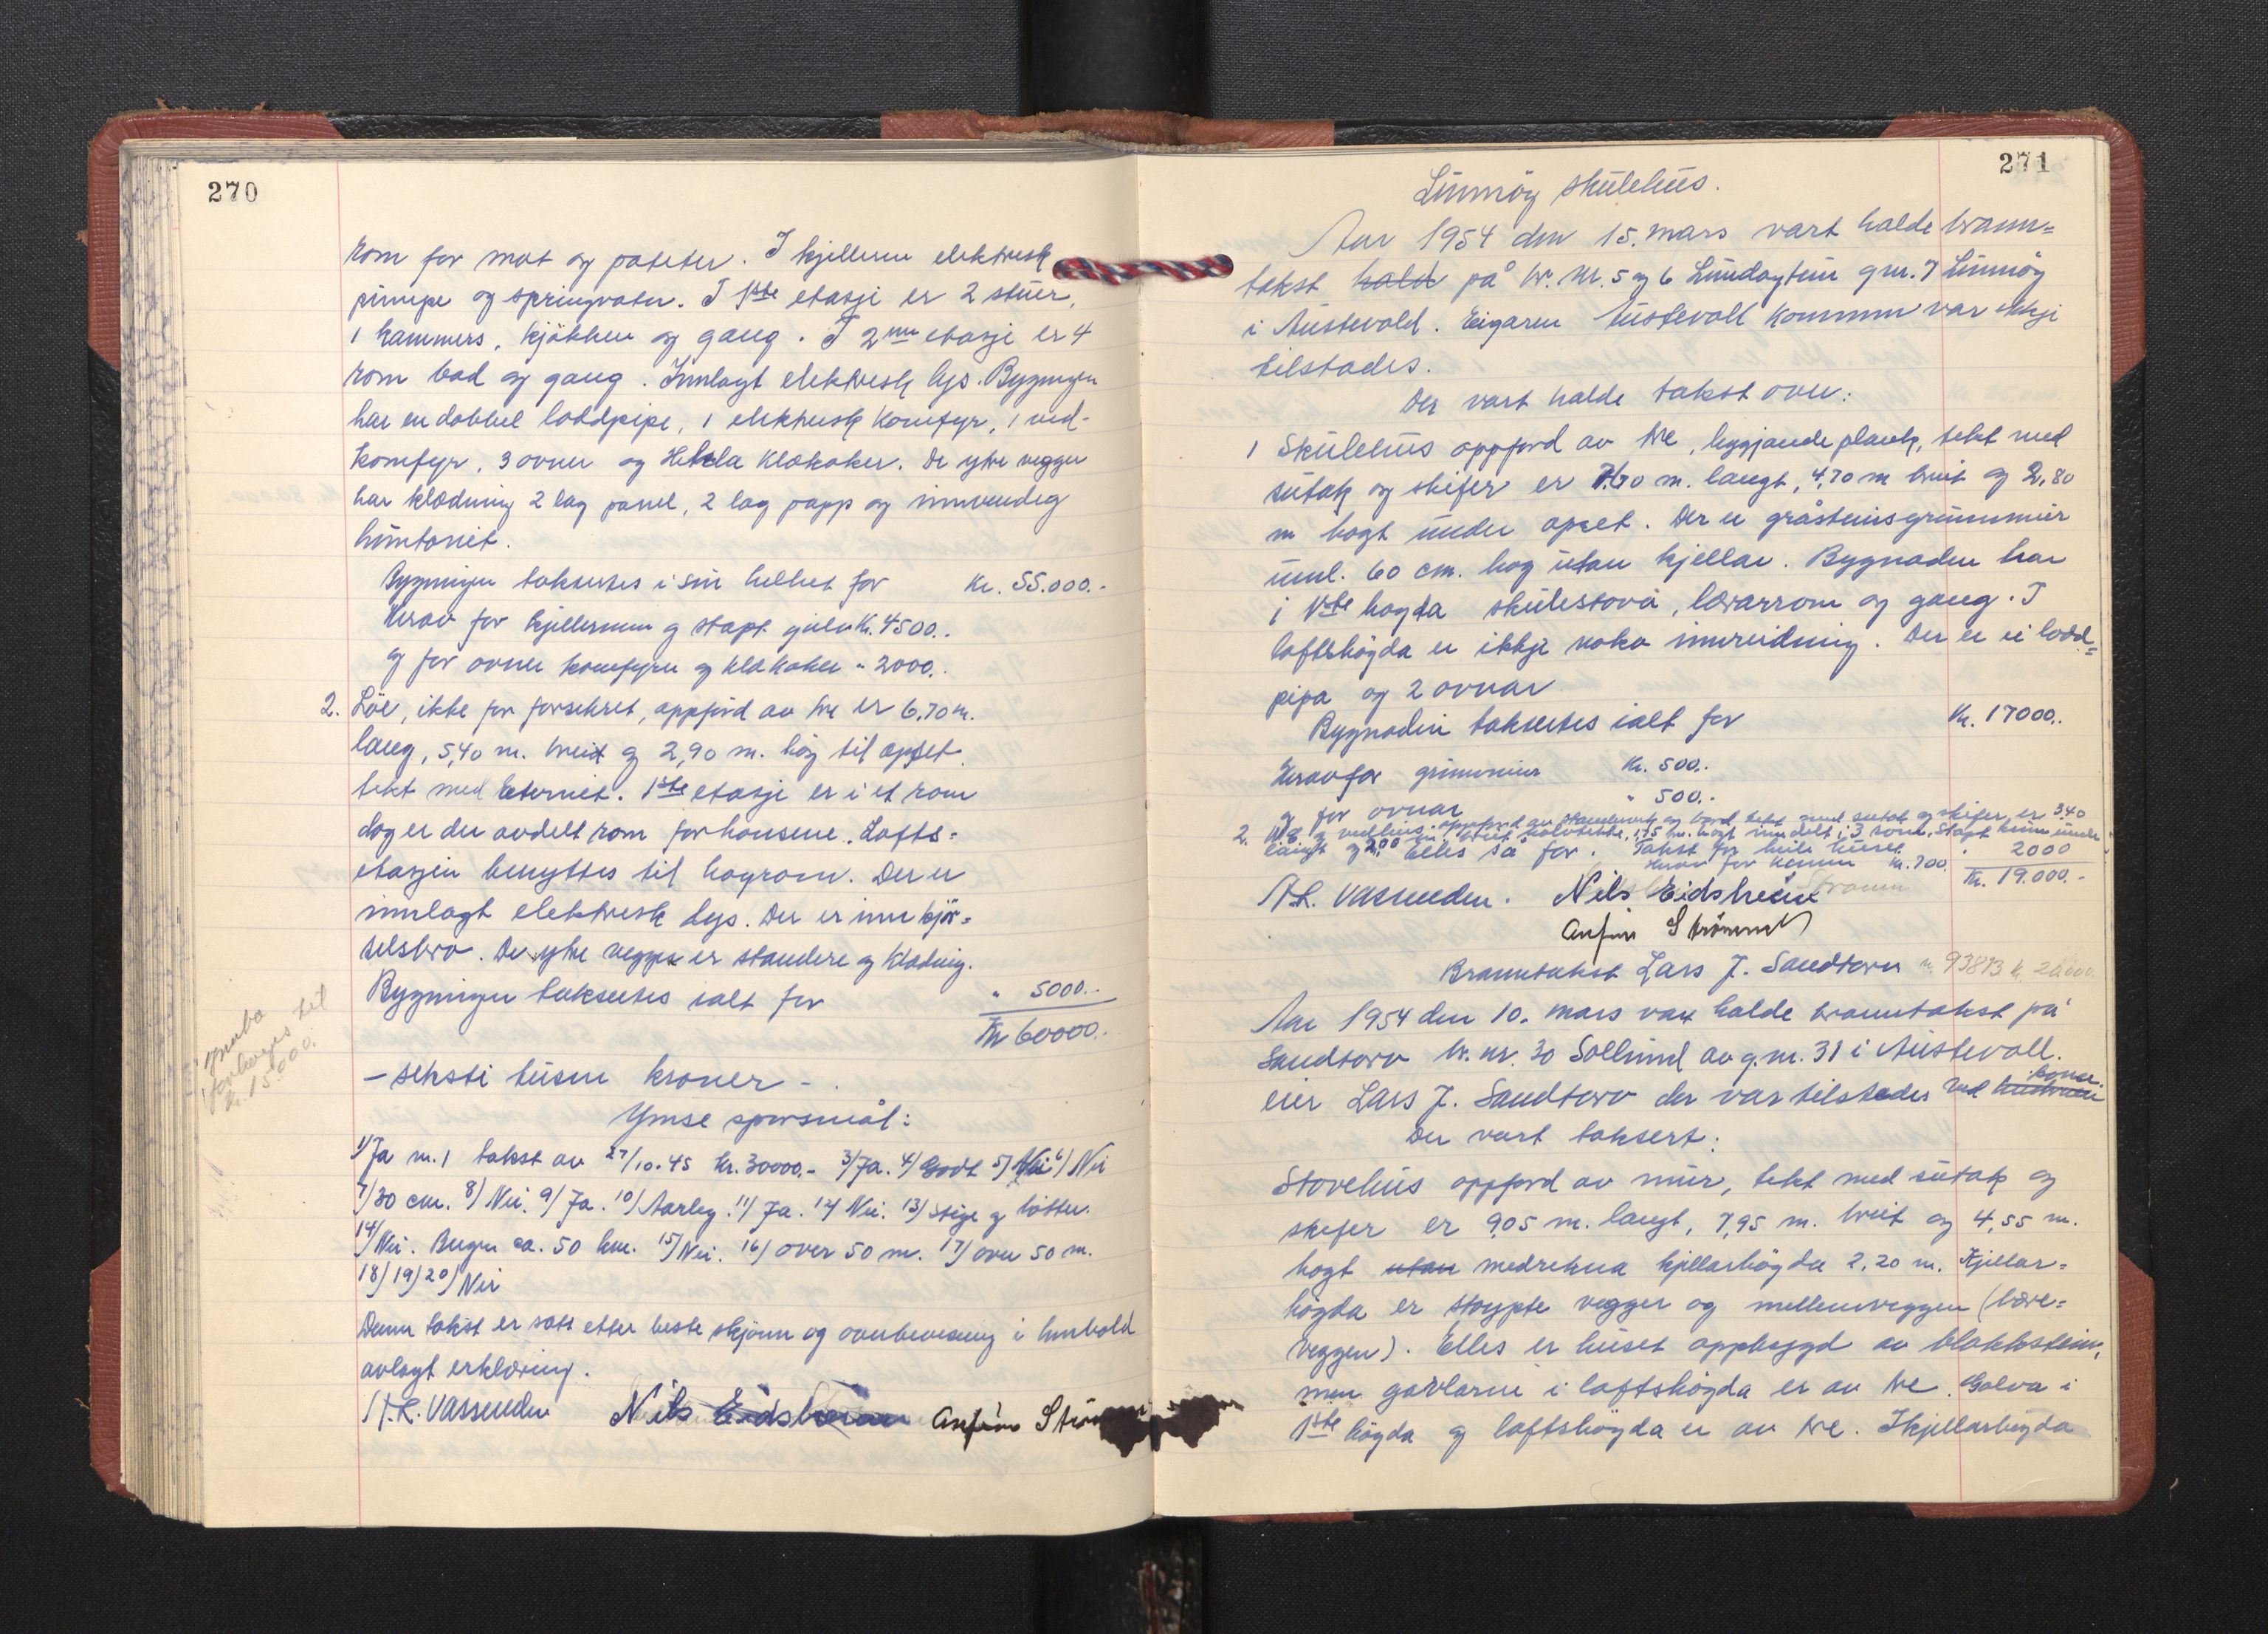 270
rom for mat og poteter. I kjelleren elektrisk
pumpe og springvatn. I 1ste etasje er 2 stuer,
1 kammers, kjökken og gang. I 2nn etasje er 4
rom bad og gang. Innlagt elektrisk lys. Bygningen
har en dobbel loddpipe, 1 elektrisk Komfyr, 1 ved-
komfyr, 3 ovner og Hekla Klokoker. De ytre vegger
har klædning 2 lag panel, 2 lag papp og innvendig
huntonit.
Bygningen takseres i sin helhet for Kr. 55.000.-
Herav for kjellermur og støpt gulv Kr. 4500..
og for ovner komfyrer og klokoker " 2000..
2. Löe, ikke för forsikret, oppförd av tre er 6,70 m.
lang, 5,40 m. breit og 2,90 m. hög til opset
tekt med Eternit. 1ste etasje er i et rom
dog er der avdelt rom for hønsene. Lofts=
etasjen benyttes til høyrom. Der er
innlagt elektrisk lys. Der er innkjör=
selsbro. De ytre vegger er standere og Klædning.
Bygningen takseres ialt for " 5000.-
Kr 60000.-
- seksti tusen kroner -
Ymse spørsmål:
1/ Ja nr. 1 takst av 27/10-45 kr. 30000.- 3/ Ja. 4/ Godt 5/ Nei 6/ Nei
7/ 30 cm. 8/ Nei. 9/ Ja. 10/ Aarleg. 11/ Ja. 12/ Nei. 13/ Stige og bötter.
14/ Nei. Bergen ca. 50 km. 15/ Nei. 16/ over 50 m. 17/ over 50 m.
18/ 19/ 20/ Nei
Denne takst er satt etter beste skjönn og overbevisning i henhold
avlagt erklæring.
H.L. Vassenden Nils Eidsheim Anfinn Ström
forhøyes til
kr. 15000.
271
Linnröy skulehus.
Aar 1954 den 15. mars vart halde brann=
takst hald på br. nr. 5 og 6 Lundagtein gnr. 7 Linnröy
i Austevold. Eigaren Austevoll Kommune var ikkje
tilstades.
Der vart halde takst over:
1 Skulehus oppførd av tre, liggjande plank, tekt med
sutak og skifer er 7,60 m. langt, 4,70 m breit og 2,80
m høgt under opset. Der er gråsteinsgrunnmur
uml. 60 cm. høg utan kjellar. Bygnaden har
i 1ste høgda skulestova, lærarrom og gang. I
loftshögda er ikkje noko innreidning. Der er ei lodd=
pipa og 2 ovnar
Bygnaden takseres ialt for Kr. 17000..
Herav for grunnmur Kr. 500..
og for ovnar " 500.-
2. W.c. og vedhus. oppførd av standerverk og bord, tekt med sutak og skifer, er 3.40
langt og 2,00 m. breit halvtekkt, 1,75 m. høgt inndelt i 3 rom, Støpt kum under
Elles så for. Takst for heile huset " 2000
Herav for kummen Kr. 700 Kr. 19.000.-
H.L. Vassenden. Nils Eidsheim
Anfinn Strömmen
Branntakst Lars J. Sandtorv nr 93813 k. 20.000
Aar 1954 den 10. mars vart halde branntakst på
Sandtorv br. nr. 30 Solhund av g.nr. 31 i Austevoll.
eier Lars J. Sandtorv der var tilstedes ved kona. hustruen
Der vart taksert:
Stovehus oppførd av mur, tekt med sutak og
skifer er 9,05 m. langt, 7,95 m. breit og 4,55 m.
høgt utan medrekna kjellarhögda 2,20 m. Kjellar=
högda er støypte vegger og mellemveggen (bære=
veggen). Elles er huset oppbygd av blokkstein,
men gavlarne i loftshögda er av tre. Golva i
1ste högda og loftshögda er av tre. I kjellarhögda